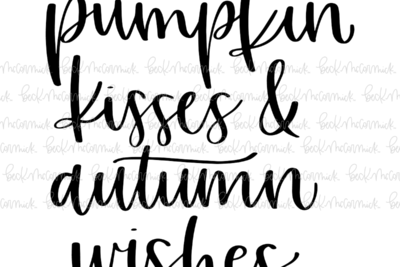 pumpkin
kisses &
autumn
wishes